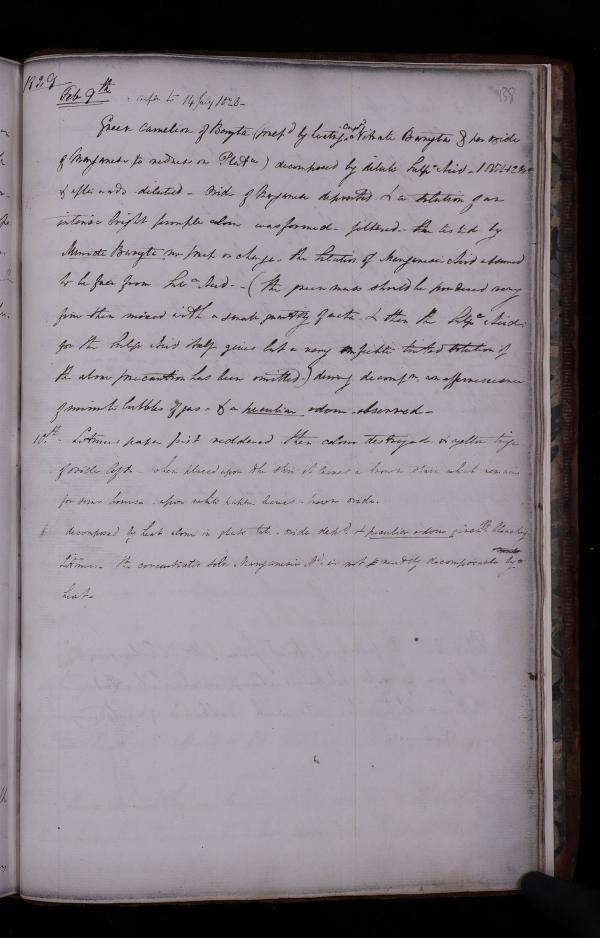 1829
138
Feb 9th
refer to 14 July 1828 -
Green Camelion of Baryta (prep'd by heating Nitrate Baryta & per oxide
of Manganese to redness in Platm) decomposed by dilute Sulpc Acid - 1 +
& afterwards diluted - oxide of Manganese deposited & a solution of an
intense bright purple colour was formed - filtered - tested by
Muriate Baryta no precp or change - the Solution of Manganesic Acid assumed
to be free from Sulc Acid - - (the green mass should be powdered very
fine then mixed with a small quantity of water & then the Sulpc Acid
for the Sulpc Acid itself gives but a very tinted solution if
the above precaution has been omitted.) during decompn an effervescence
of minute bubbles of gas - & a peculiar odour observed -
10th - Litmus paper first reddened then colour destroyed & yellow tinge
of oxide left - when placed upon the skin it leaves a brown stain which remains
for some hours - upon white paper leaves brown oxide.
decomposed by heat alone in glass tube - oxide depd & peculiar odour bleaching
Litmus - the concentrated soln Manganesic Ad is not readily decomposable by
heat -